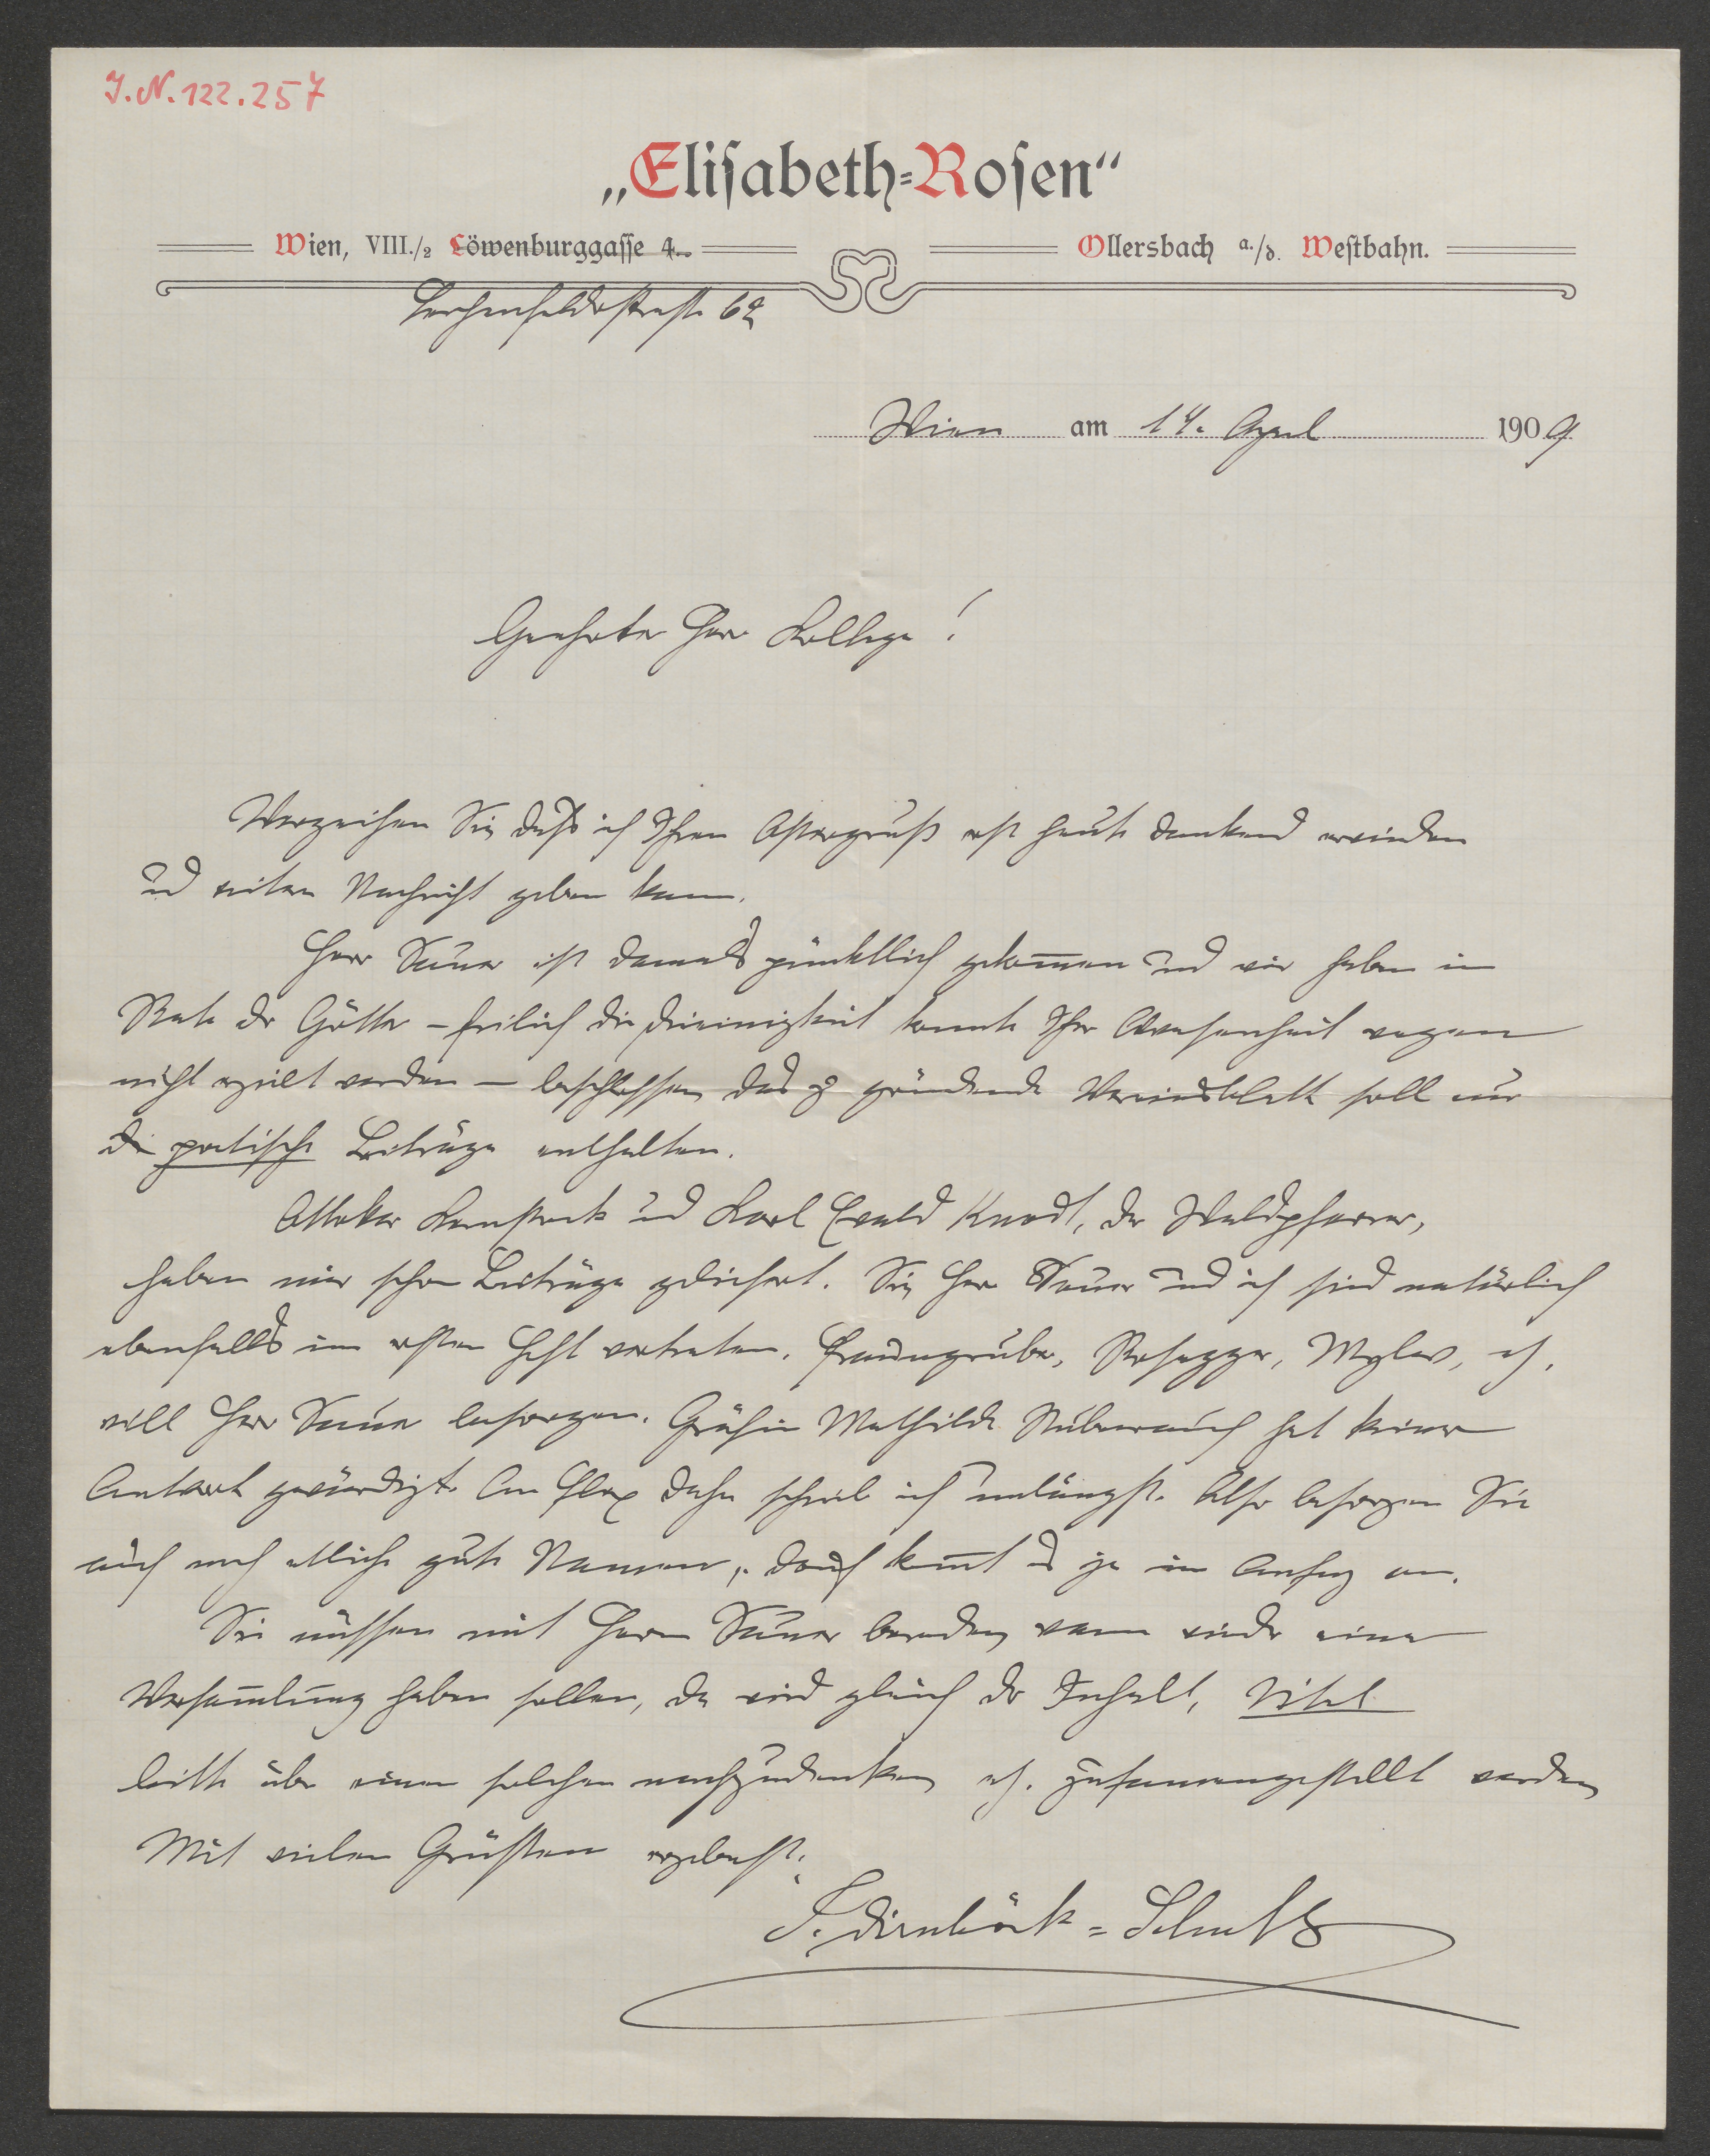 J.N. 122.257
„Elisabeth=Rosen“
Wien, VIII./2 Löwenburggasse 4. Ollersbach a./d. Westbahn.
Lerchenfelderstraße 62
Wien am 14. April 1909
Geehrter Herr Kollege!
Verzeihen Sie daß ich Ihren Ostergruß erst heute dankend erwidern
und weitere Nachricht geben kann.
Herr Sauer ist damals pünktlich gekommen und wir haben im
Rate der Götter – freilich die Dreieinigkeit konnte Ihrer Abwesenheit wegen
nicht erzielt werden – beschlossen das zu gründende Vereinsblatt soll nur
poetische Beiträge enthalten.
Ottokar Kernstock und Karl Ewald Knodt, der Waldpfarrer,
haben mir schon Beiträge gesichert. Sie Herr Sauer und ich sind natürlich
ebenfalls im ersten Heft vertreten. Fraungruber, Rosegger, etc.
will Herr Sauer besorgen. Gräfin Mathilde Stubenberg hat keiner
Antwort gewürdigt. An Felix Dahn schrieb ich unlängst. Also besorgen Sie
auch noch etliche gute Namen, darauf kommt es ja im Anfang an.
Sie müssen mit Herrn Sauer bereden wann wieder eine
Versammlung haben sollen, da wird gleich der Inhalt, Titel
bitte über einen solchen nachzudenken etc. zusammengestellt werden
Mit vielen Grüßen ergebenst:
F. Dirnböck=Schulz